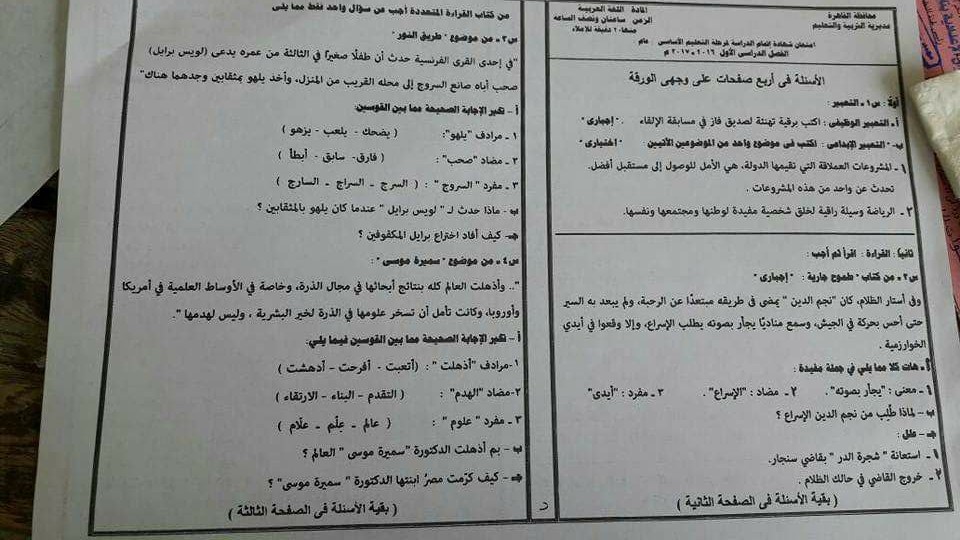 محافظة القاهرة
مديرية التربية والتعليم
المادة : اللغة العربية
الزمن : ساعتان ونصف الساعة
منها ٢٠ دقيقة للإملاء
امتحان شهادة إتمام الدراسة لمرحلة التعليم الأساسى عام
الفصل الدراسى الأول ٢٠١٦ - ٢٠١٧ م
الأسئلة فى أربع صفحات على وجهى الورقة
أولًا : س١ - التعبير :
أ - التعبير الوظيفى : اكتب برقية تهنئة لصديق فاز في مسابقة الإلقاء . - "إجبارى"
ب- "التعبير الإبداعى : اكتب فى موضوع واحد من الموضوعين الآتيين "اختيارى"
١ - المشروعات العملاقة التي تقيمها الدولة، هي الأمل للوصول إلى مستقبل أفضل.
تحدث عن واحد من هذه المشروعات .
٢ - الرياضة وسيلة راقية لخلق شخصية مفيدة لوطنها ومجتمعها ونفسها.
ثانيًا : القراءة : اقرأ ثم أجب :
س٢ - من كتاب " طموح جارية : "إجبارى"
وفى أستار الظلام، كان "نجم الدين " يمضى فى طريقه مبتعدًا عن الرحبة، ولم يبعد به السير
حتى أحس بحركة في الجيش، وسمع مناديًا يجأر بصوته يطلب الإسراع، وإلا وقعوا في أيدي
الخوارزمية .
أ - هات كلا مما يلي فى جملة مفيدة :
١ - معنى : "يجأر بصوته". ٢ - مضاد : "الإسراع". ٣ - مفرد : "أيدى"
ب - لماذا طُلِب من نجم الدين الإسراع ؟
جـ - علل :
١ - استعانة " شجرة الدر " بقاضي سنجار.
٢ - خروج القاضي في حالك الظلام .
( بقية الأسئلة فى الصفحة الثانية )
من كتاب القراءة المتعددة أجب عن سؤال واحد فقط مما يلى
س٣ - من موضوع " طريق النور "
"في إحدى القرى الفرنسية حدث أن طفلًا صغيرًا في الثالثة من عمره يدعى (لويس برايل)
صحب أباه صانع السروج إلى محله القريب من المنزل، وأخذ يلهو بمثقابين وجدهما هناك"
أ - تخير الإجابة الصحيحة مما بين القوسين:
١ - مرادف "يلهو": ( يضحك - يلعب - يزهو )
٢ - مضاد "صحب" : ( فارق - سابق - أبطأ )
٣ - مفرد " السروج " : ( السرج - السراج - السارج )
ب - ماذا حدث لـ " لويس برايل " عندما كان يلهو بالمثقابين ؟
جـ - كيف أفاد اختراع برايل المكفوفين ؟
س٤ - من موضوع " سميرة موسى " :
".. وأذهلت العالم كله بنتائج أبحاثها في مجال الذرة، وخاصة في الأوساط العلمية في أمريكا
وأوروبا، وكانت تأمل أن تسخر علومها في الذرة لخير البشرية ، وليس لهدمها ".
أ - تخير الإجابة الصحيحة مما بين القوسين فيما يلي:
١-مرادف " أذهلت " : (أتعبت - أفرحت - أدهشت )
٢-مضاد "الهدم" : ( التقدم - البناء - الارتقاء )
٣ - مفرد " علوم " : ( عالم - عِلْم - علّام )
ب - بم أذهلت الدكتورة " سميرة موسى " العالم ؟
جـ - كيف كرّمت مصرُ ابنتها الدكتورة " سميرة موسى" ؟
( بقية الأسئلة فى الصفحة الثالثة )